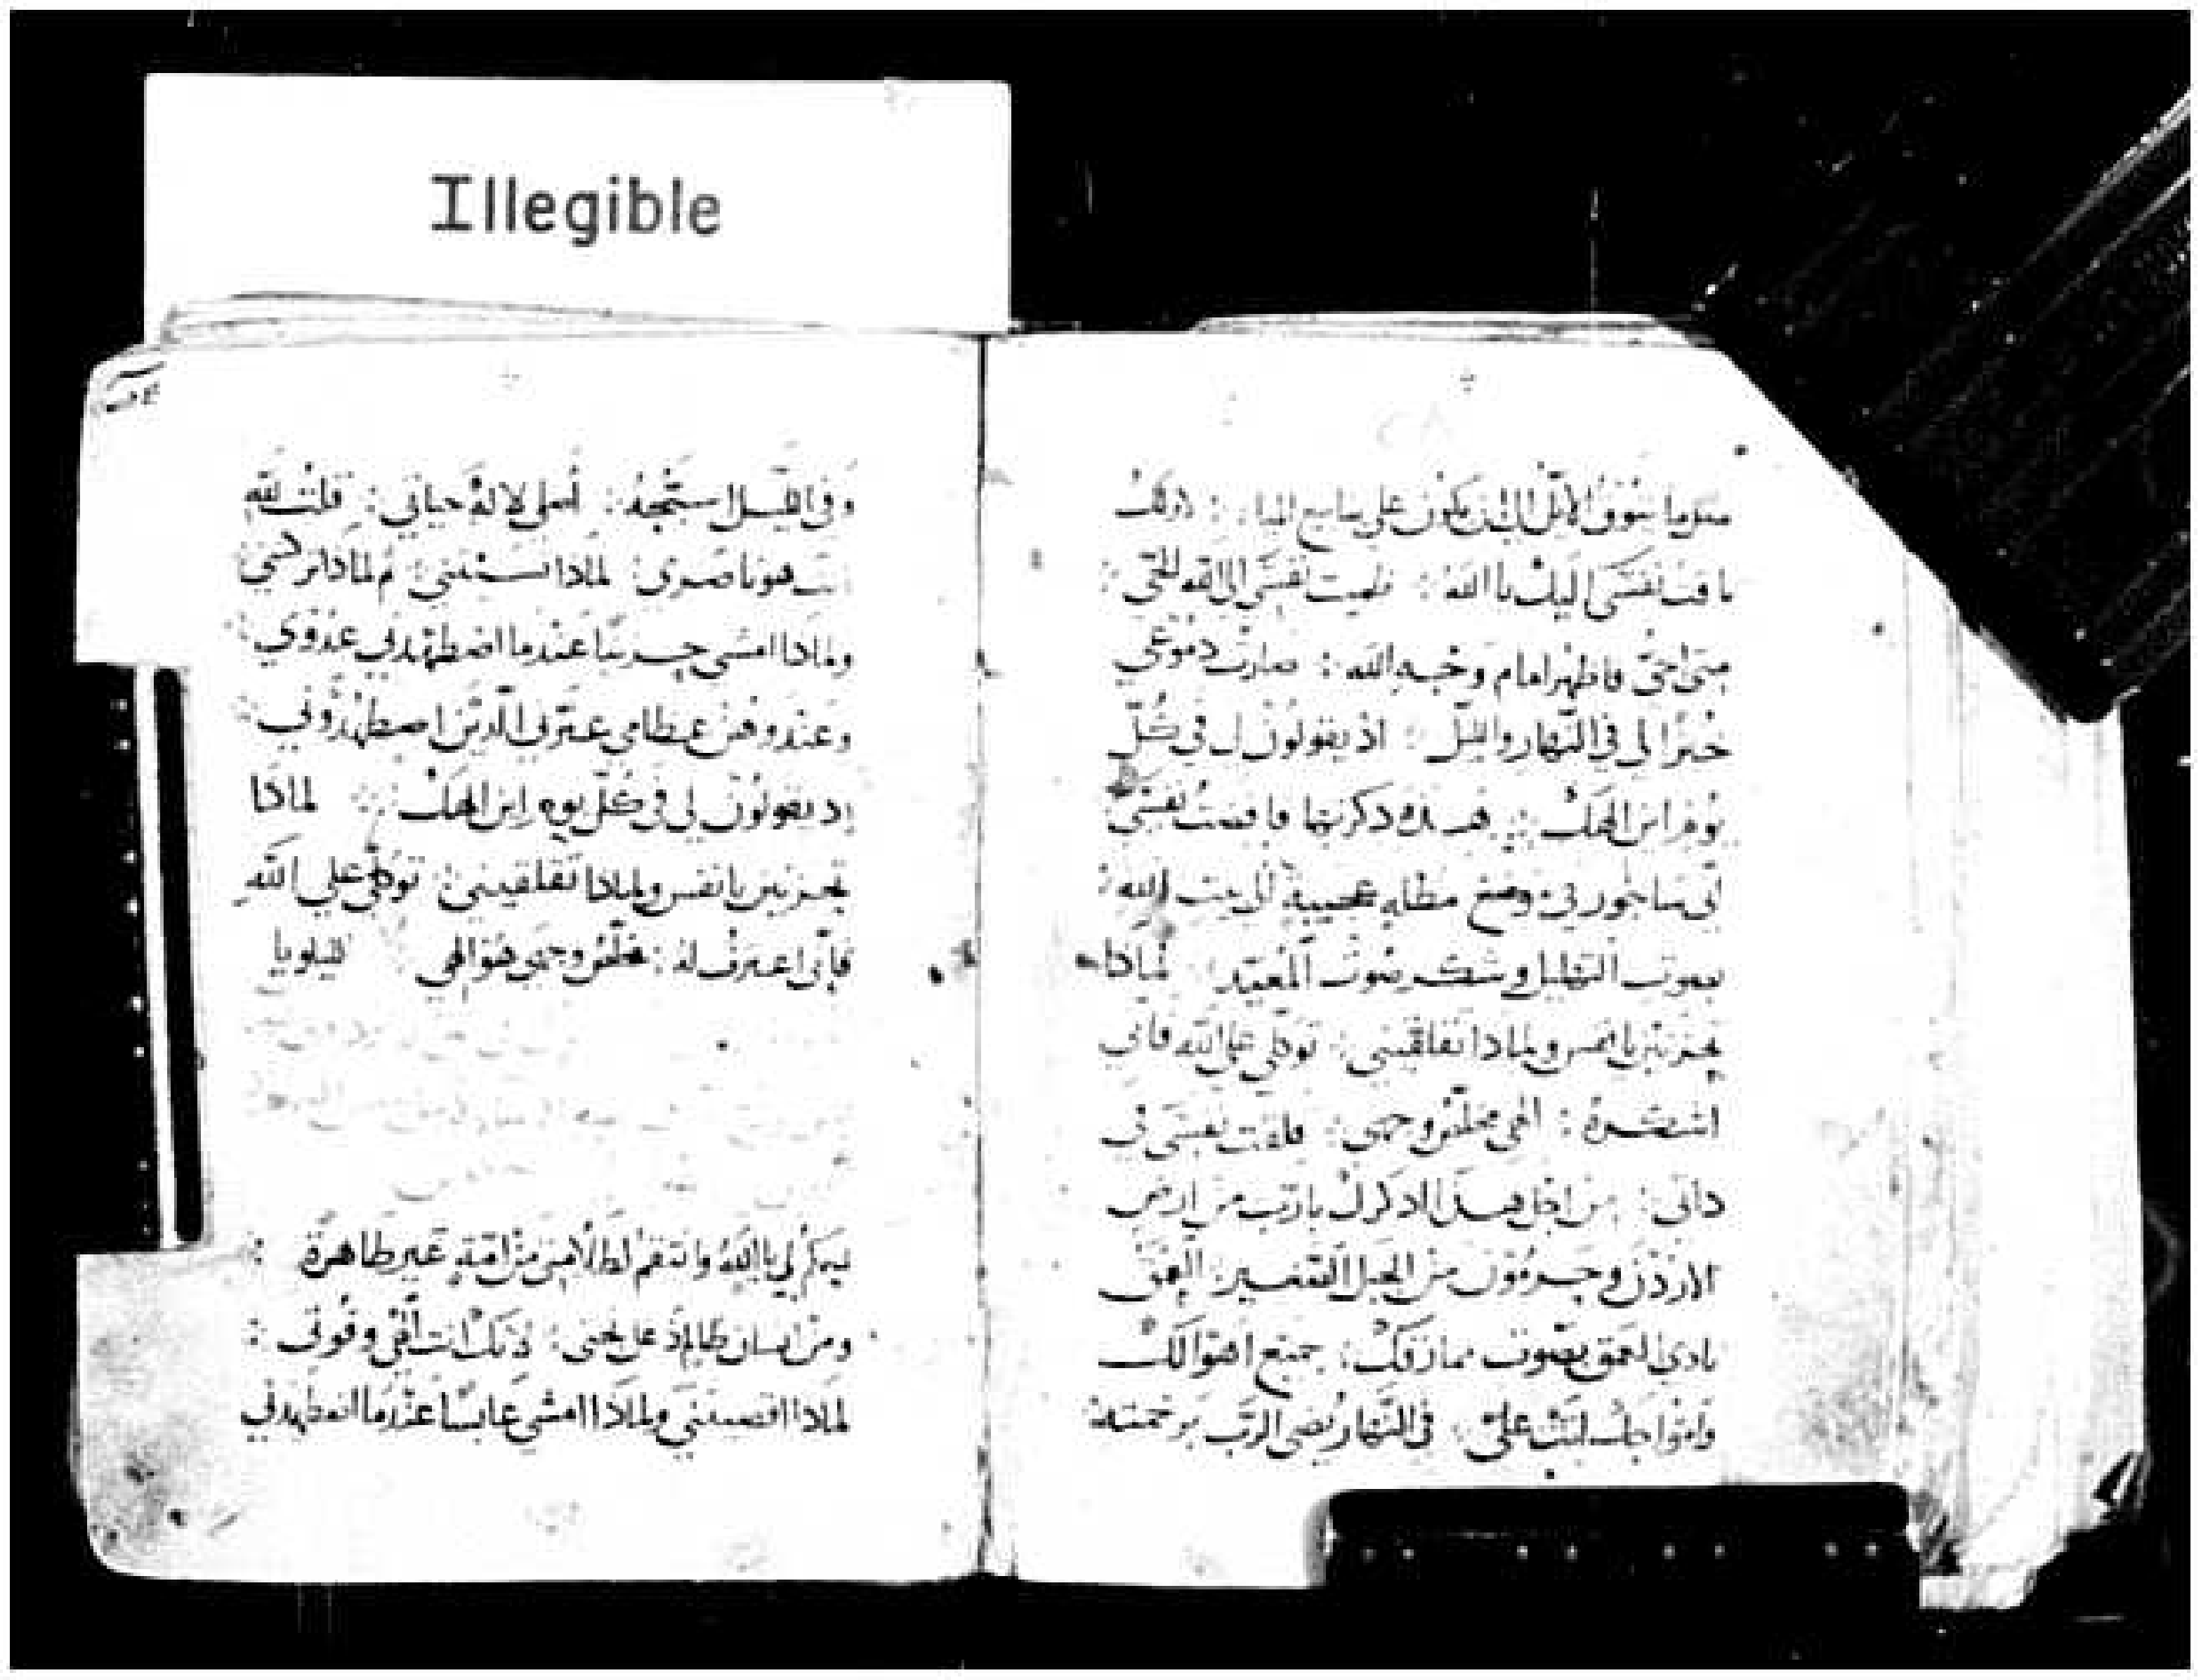 Illegible
مثل ما يتوق الأيل الى يكون على ينابيع المياه : كذلك
تاقت نفسي اليك يا الله : ظميت نفسي الى الله الحي :
متى اجي فاظهر امام وجه الله : صارت دموعي
خبزًا لي في النهار والليل : اذ يقولون لي في كُلّ
يوم اين الهك : هذه ذكرتها فافضت نفسي
اني ساجوز في موضع مظله عجيبة الى بيت الله :
بصوت التهليل وشكر صوت المعيد لماذا
تحزنين يا نفس ولماذا تقلقيني : توكلي على الله فاني
اشكره : الهي مخلص وجهي : قلقت نفسي في
ذاتي : من اجل هذا اذكرك يا رب من ارض
الاردن وحرمون من الجبل الصغير : العمق
نادى العمق بصوت ميازيبك : جميع اهوالك
وامواجك علي : في النهار الرب برحمته
وفي الليل تسبيحه : لاله حياتي : قلت لله
انت هو ناصري : لماذا نسيتني : ثم لماذا تركتني
ولماذا امشي حزينًا عندما اضطهدني عدوي :
وعند وهن عظامي عيّرني الذين اضطهدوني
اذ يقولون لي في كُلّ يوم اين الهك : لماذا
تحزنين يا نفس ولماذا تقلقيني : توكلي على الله
فاني اعترف له : مخلص وجهي هو الهي الليلويا
احكم لي يا الله وانتقم لظلامتي من امّة غير طاهرة :
ومن انسان ظالم نجني : لانك انت الهي وقوتي :
لماذا اقصيتني ولماذا امشي عابسًا عندما اضطهدني